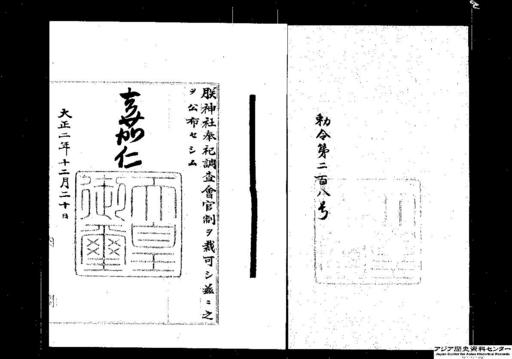 勅令第三百八号
朕神社奉祀調査會官制ヲ裁可シ茲ニ之
ヲ公布セシム
嘉仁
天皇御璽
大正二年十二月二十日
アジア歴史資料センター
Japan Center for Asian Historical Records